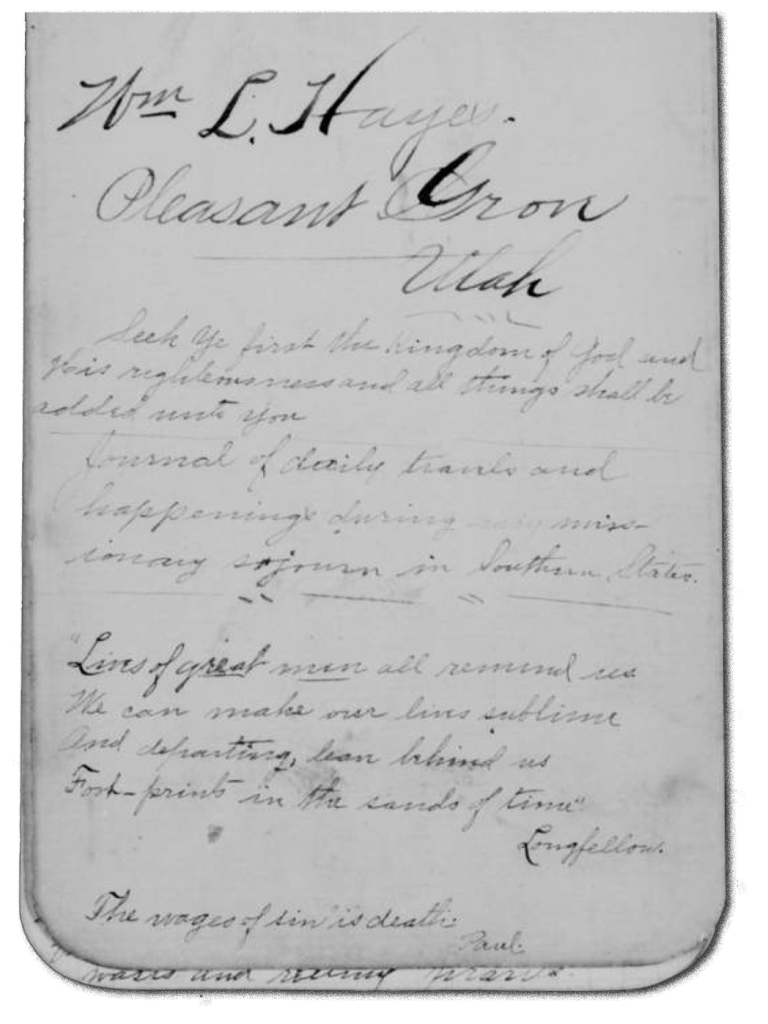 Wm L. Hayes.
Pleasant Grove
Utah
Seek Ye first the Kingdom of God and
His righteousness and all things shall be
added unto you
Journal of daily travels and
happenings during my miss-
ionary sojourn in Southern States.
"Lives of great men all remind us
We can make our lives sublime
And departing, leave behind us
Foot-prints in the sands of time"
Longfellow.
The wages of sin is death.
Paul.
and